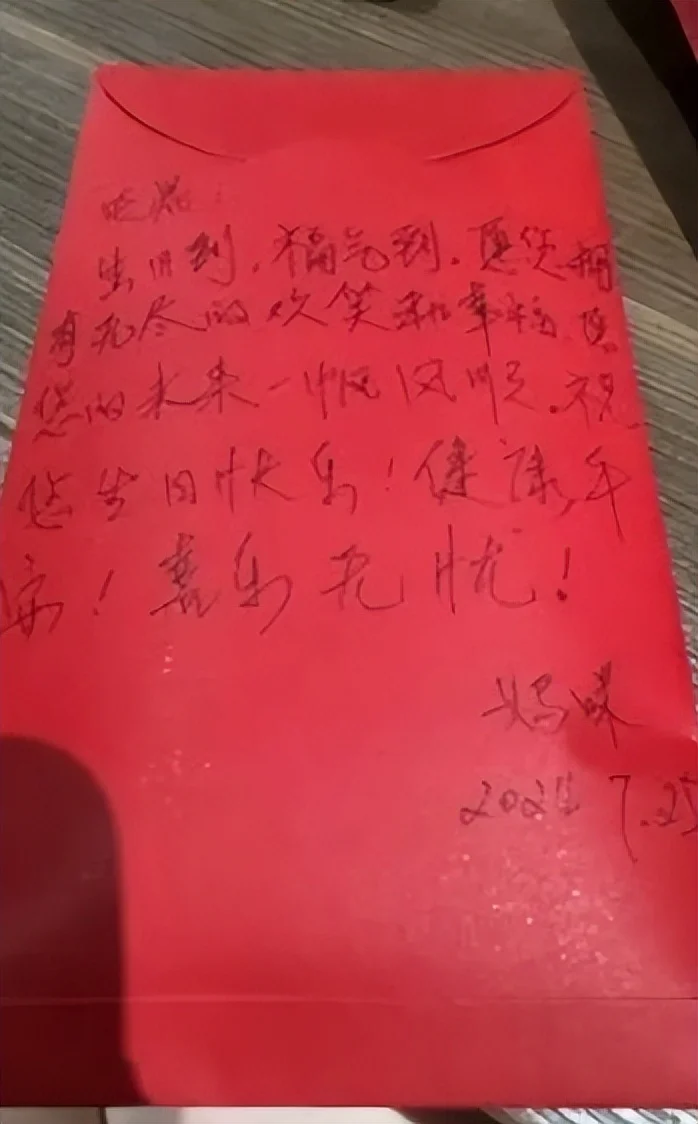 生日到,福气到,愿您拥
有无尽的欢笑和幸福,愿
您的未来一帆风顺。祝
您生日快乐!健康,平
安!喜乐无忧!
妈咪
2024 7.25